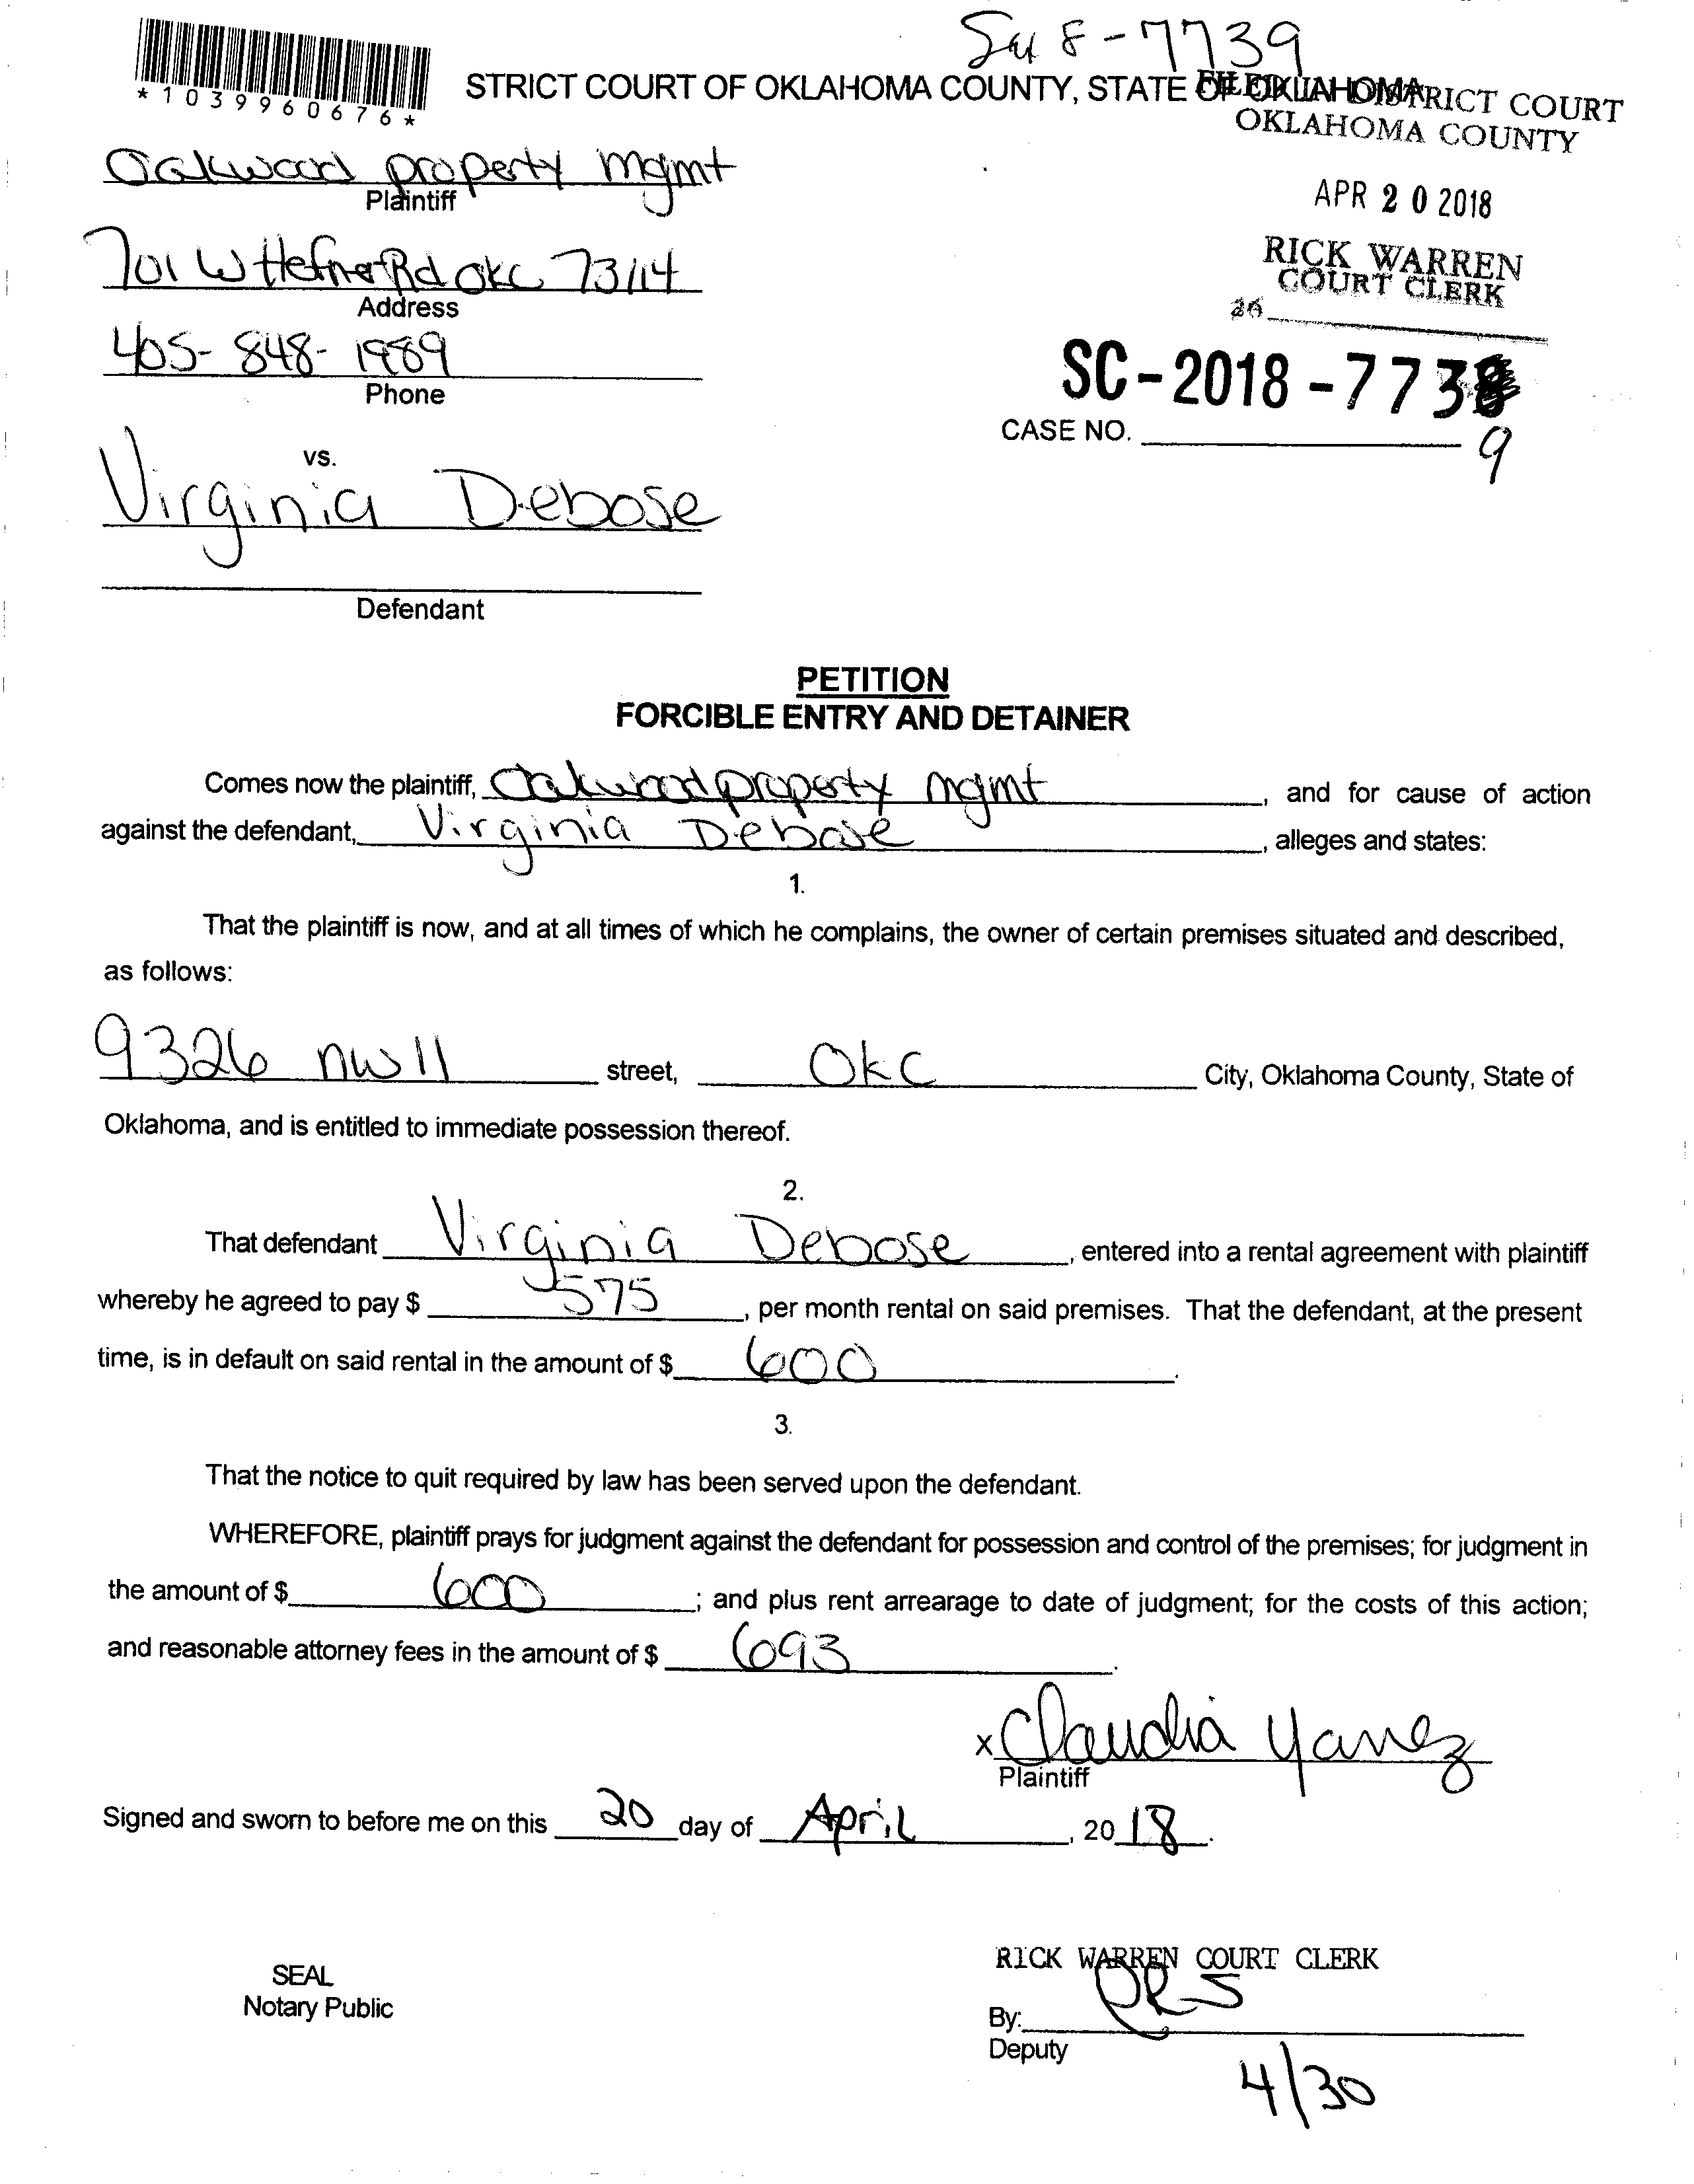 8-7739
STRICT COURT OF OKLAHOMA COUNTY, STATE OF OKLAHOMA
FILED IN DISTRICT COURT
OKLAHOMA COUNTY
*1039960676*
Oakwood property mgmt
Plaintiff
APR 20 2018
701 W Hefner Rd OKC 73114
Address
RICK WARREN
COURT CLERK
405-848-1989
Phone
SC-2018-773
CASE NO.
9
vs.
Virginia Debose
Defendant
PETITION
FORCIBLE ENTRY AND DETAINER
Comes now the plaintiff, Oakwood property mgmt, and for cause of action
against the defendant, Virginia Debose, alleges and states:
1.
That the plaintiff is now, and at all times of which he complains, the owner of certain premises situated and described,
as follows:
9326 NW 11 street, OKC City, Oklahoma County, State of
Oklahoma, and is entitled to immediate possession thereof.
2.
That defendant Virginia Debose, entered into a rental agreement with plaintiff
whereby he agreed to pay $ 575, per month rental on said premises. That the defendant, at the present
time, is in default on said rental in the amount of $ 600.
3.
That the notice to quit required by law has been served upon the defendant.
WHEREFORE, plaintiff prays for judgment against the defendant for possession and control of the premises; for judgment in
the amount of $ 600; and plus rent arrearage to date of judgment; for the costs of this action;
and reasonable attorney fees in the amount of $ 693.
x Claudia Yanez
Plaintiff
Signed and sworn to before me on this 20 day of April, 2018.
RICK WARREN COURT CLERK
SEAL
Notary Public
By:
Deputy
4/30